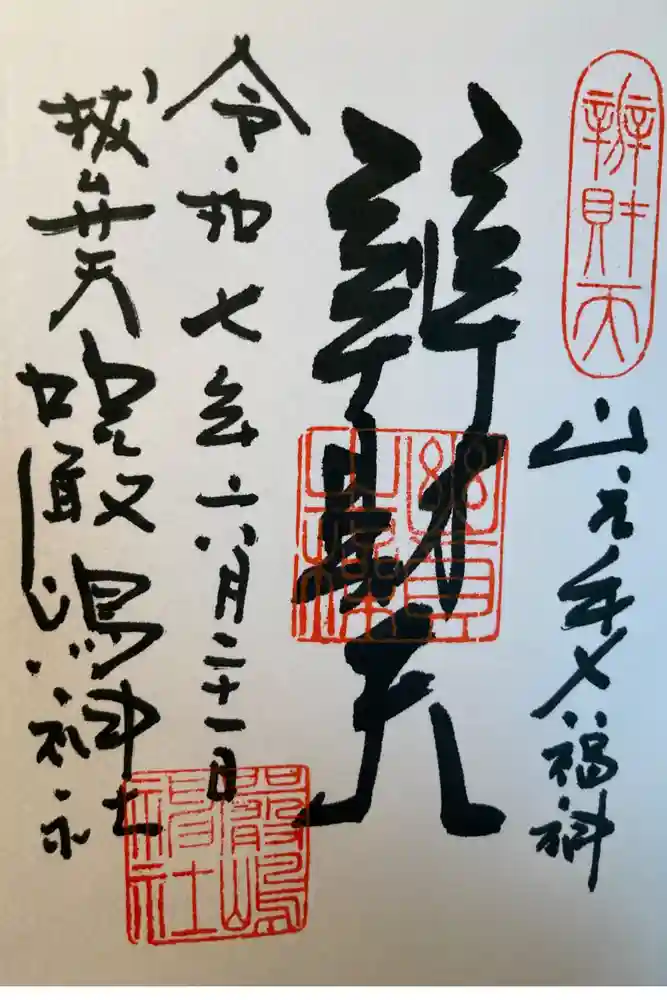 辨財天
山之手七福神
辨財天
令和七年六月二十一日
抜弁天
厳嶋神社
嚴嶋神社